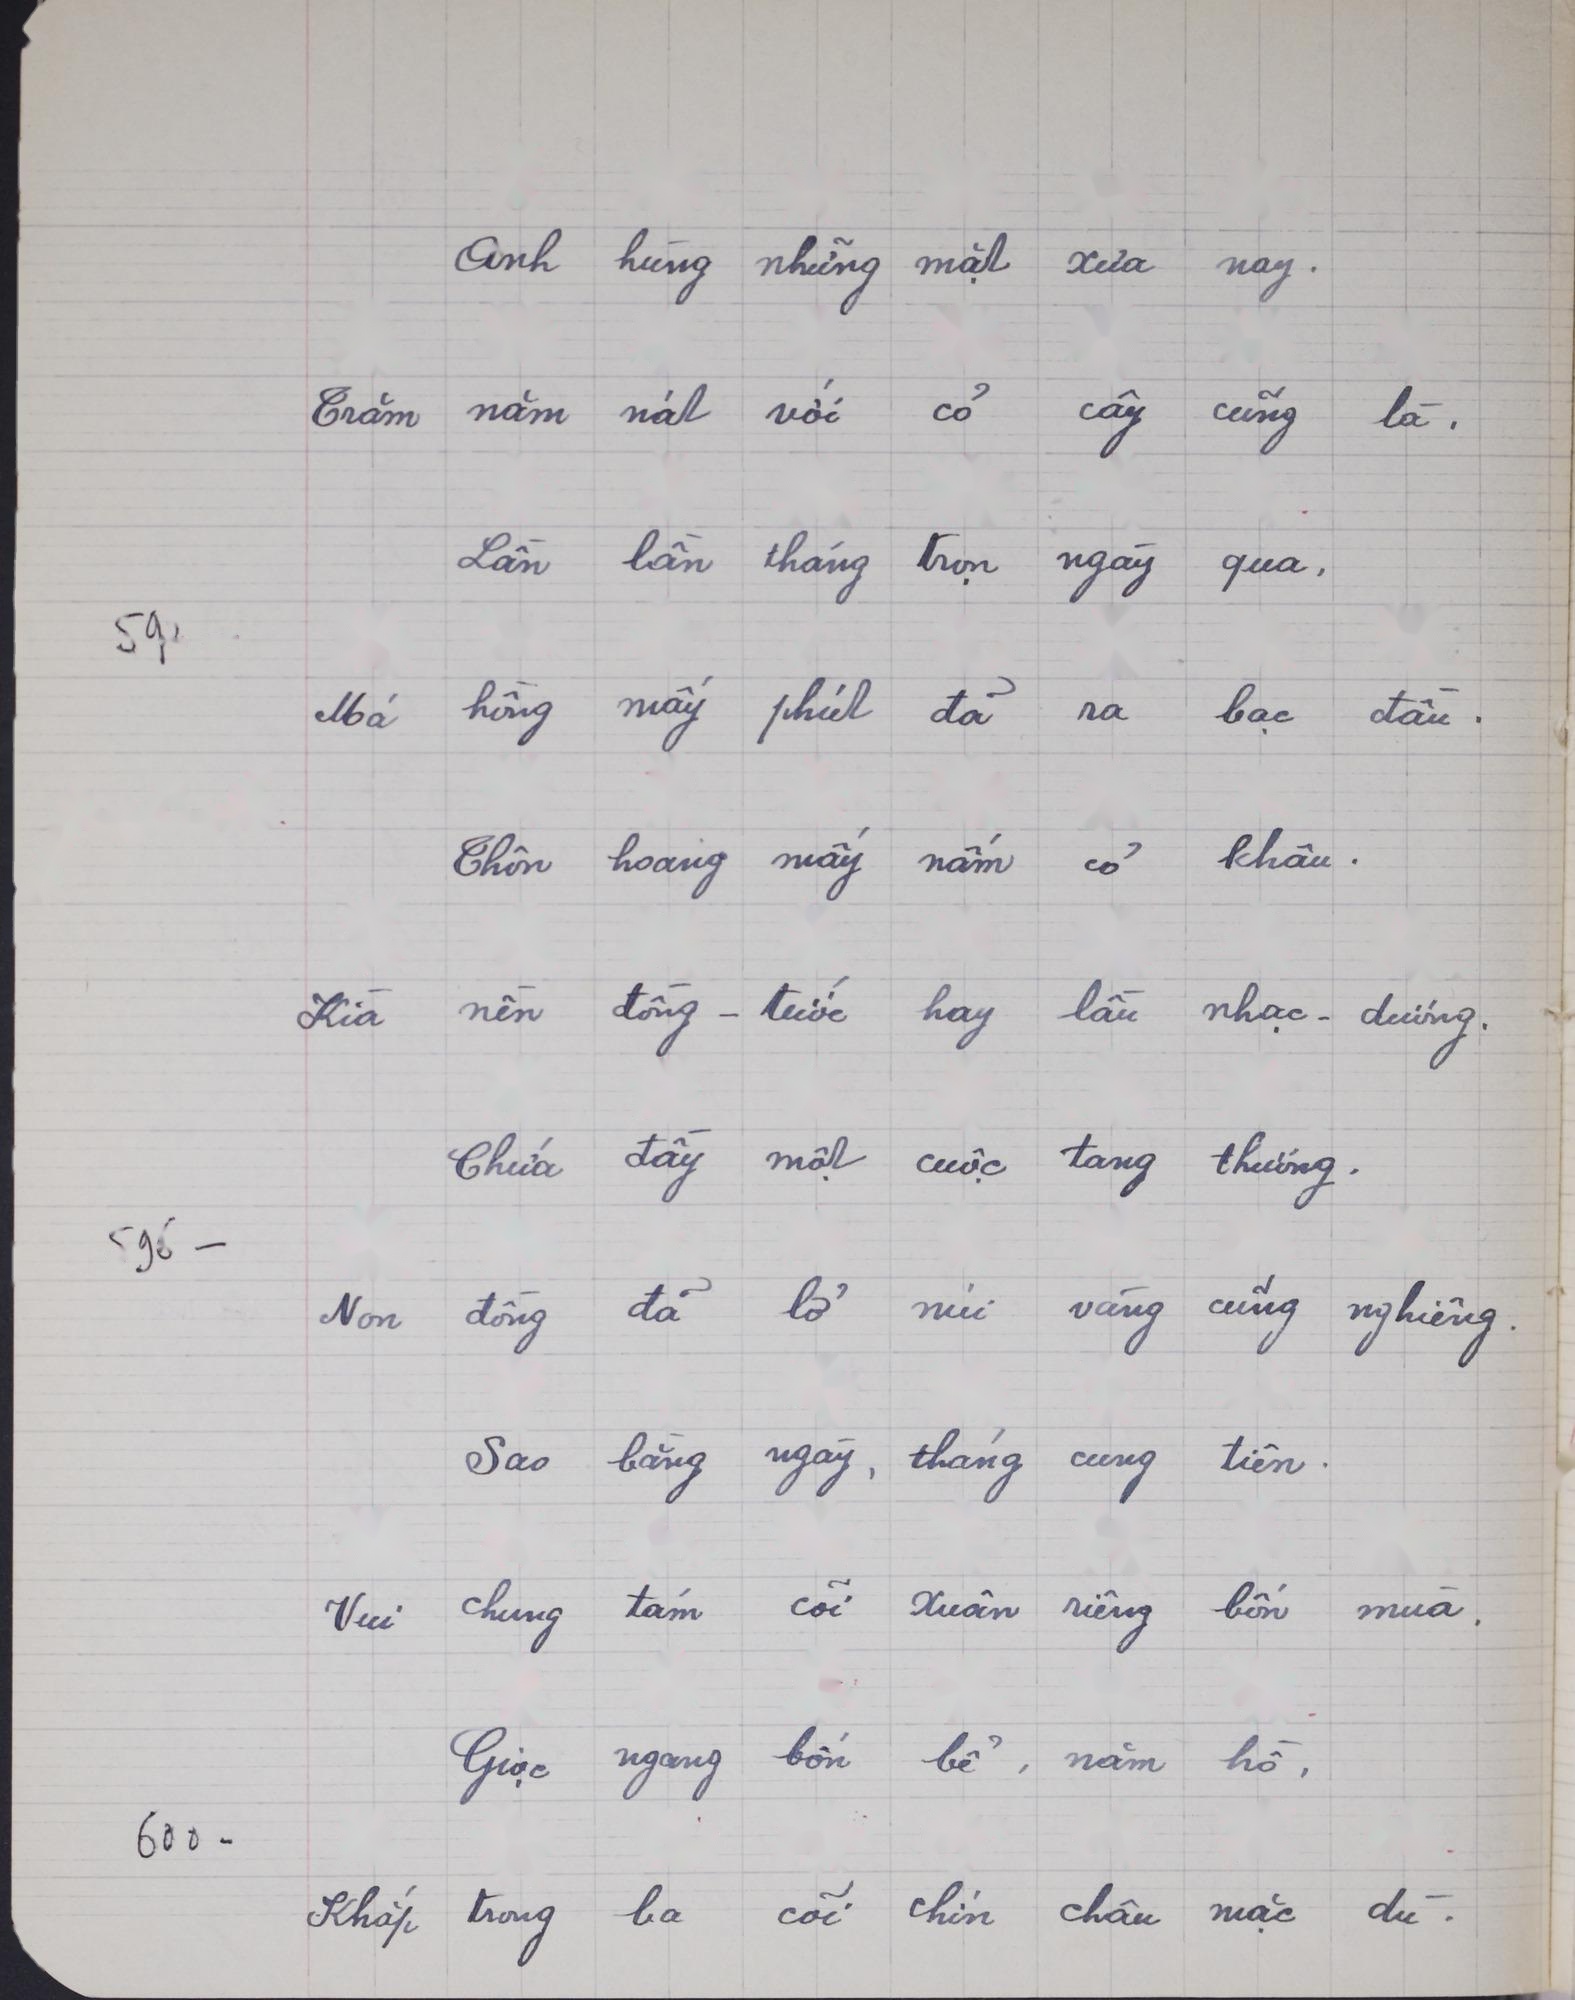 Anh hùng những mặt xưa nay.
Trăm năm nát với cỏ cây cũng là.
Lần lần tháng trọn ngày qua,
59
Má hồng mấy phút đả ra bạc đầu.
Thôn hoang mấy nấm cỏ khâu.
Kìa nền đồng - tước hay lầu nhạc - dương.
Chưa đầy một cuộc tang thương.
595 -
Non đồng đả lở núi vàng cũng nghiêng.
Sao bằng ngày, tháng cung tiên.
Vui chung tám cõi xuân riêng bốn mùa.
Giọc ngang bốn bể, năm hồ,
600 -
Khắp trong ba cõi chín châu mặc dù.